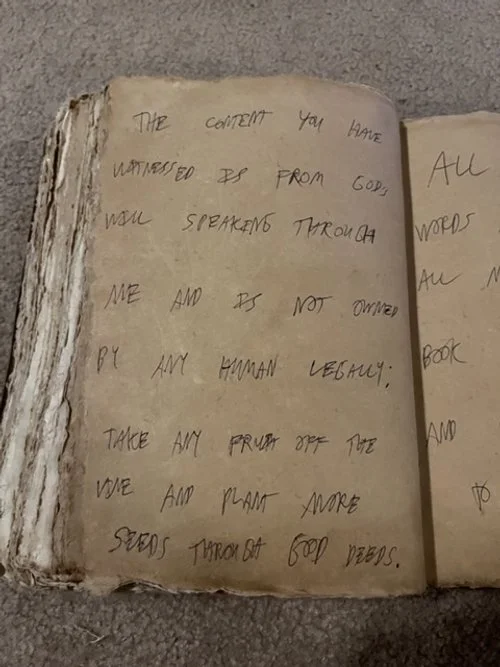 THE CONTENT YOU HAVE
WITNESSED IS FROM GODS
WILL SPEAKING THROUGH
ME AND IS NOT OWNED
BY ANY HUMAN LEGALLY;
TAKE ANY FRUIT OFF THE
VINE AND PLANT MORE
SEEDS THROUGH GOOD DEEDS.
ALL
WORDS
ALL
BOOK
AND